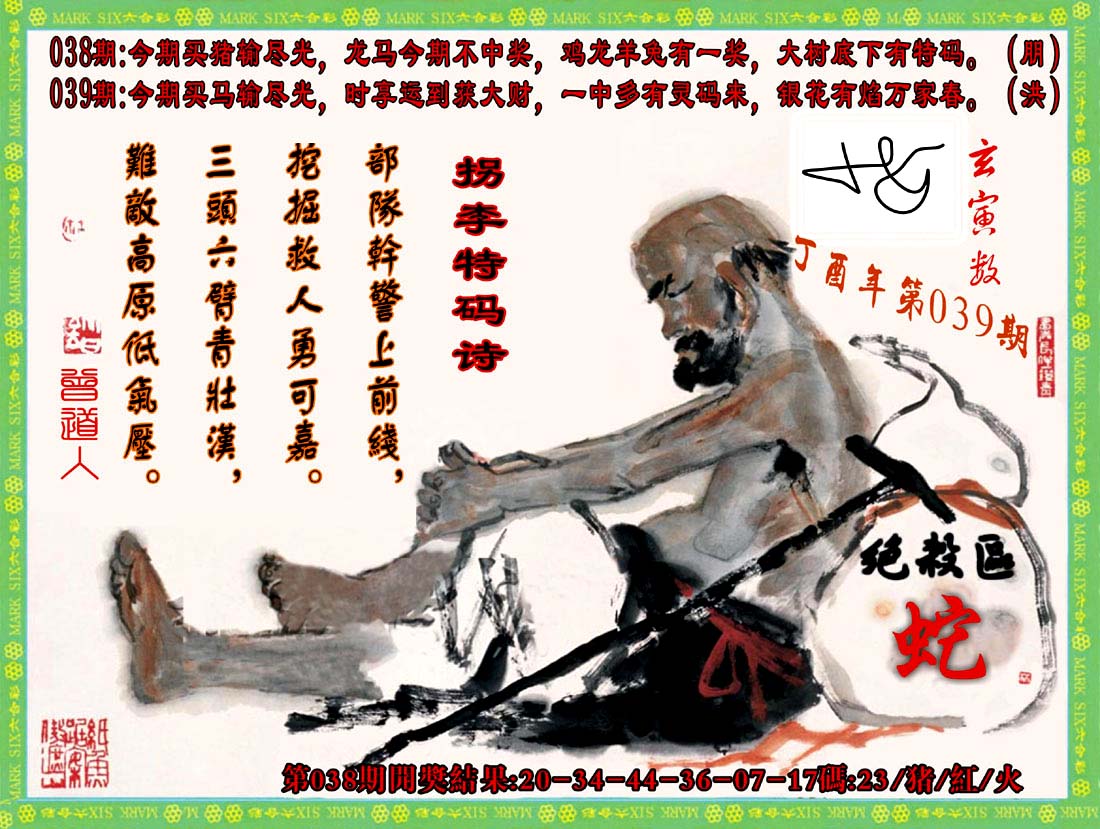 MARK SIX六合彩
038期:今期买猪输尽光，龙马今期不中奖，鸡龙羊兔有一奖，大树底下有特码。（朋）
039期:今期买马输尽光，时享运到获大财，一中多有灵码来，银花有焰万家春。（洪）
玄寅数
丁酉年第039期
拐李特码诗
部隊幹警上前綫，
挖掘救人勇可嘉。
三頭六臂青壯漢，
難敵高原低氣壓。
曾道人
绝殺區
蛇
第038期開獎結果:20-34-44-36-07-17碼:23/猪/紅/火